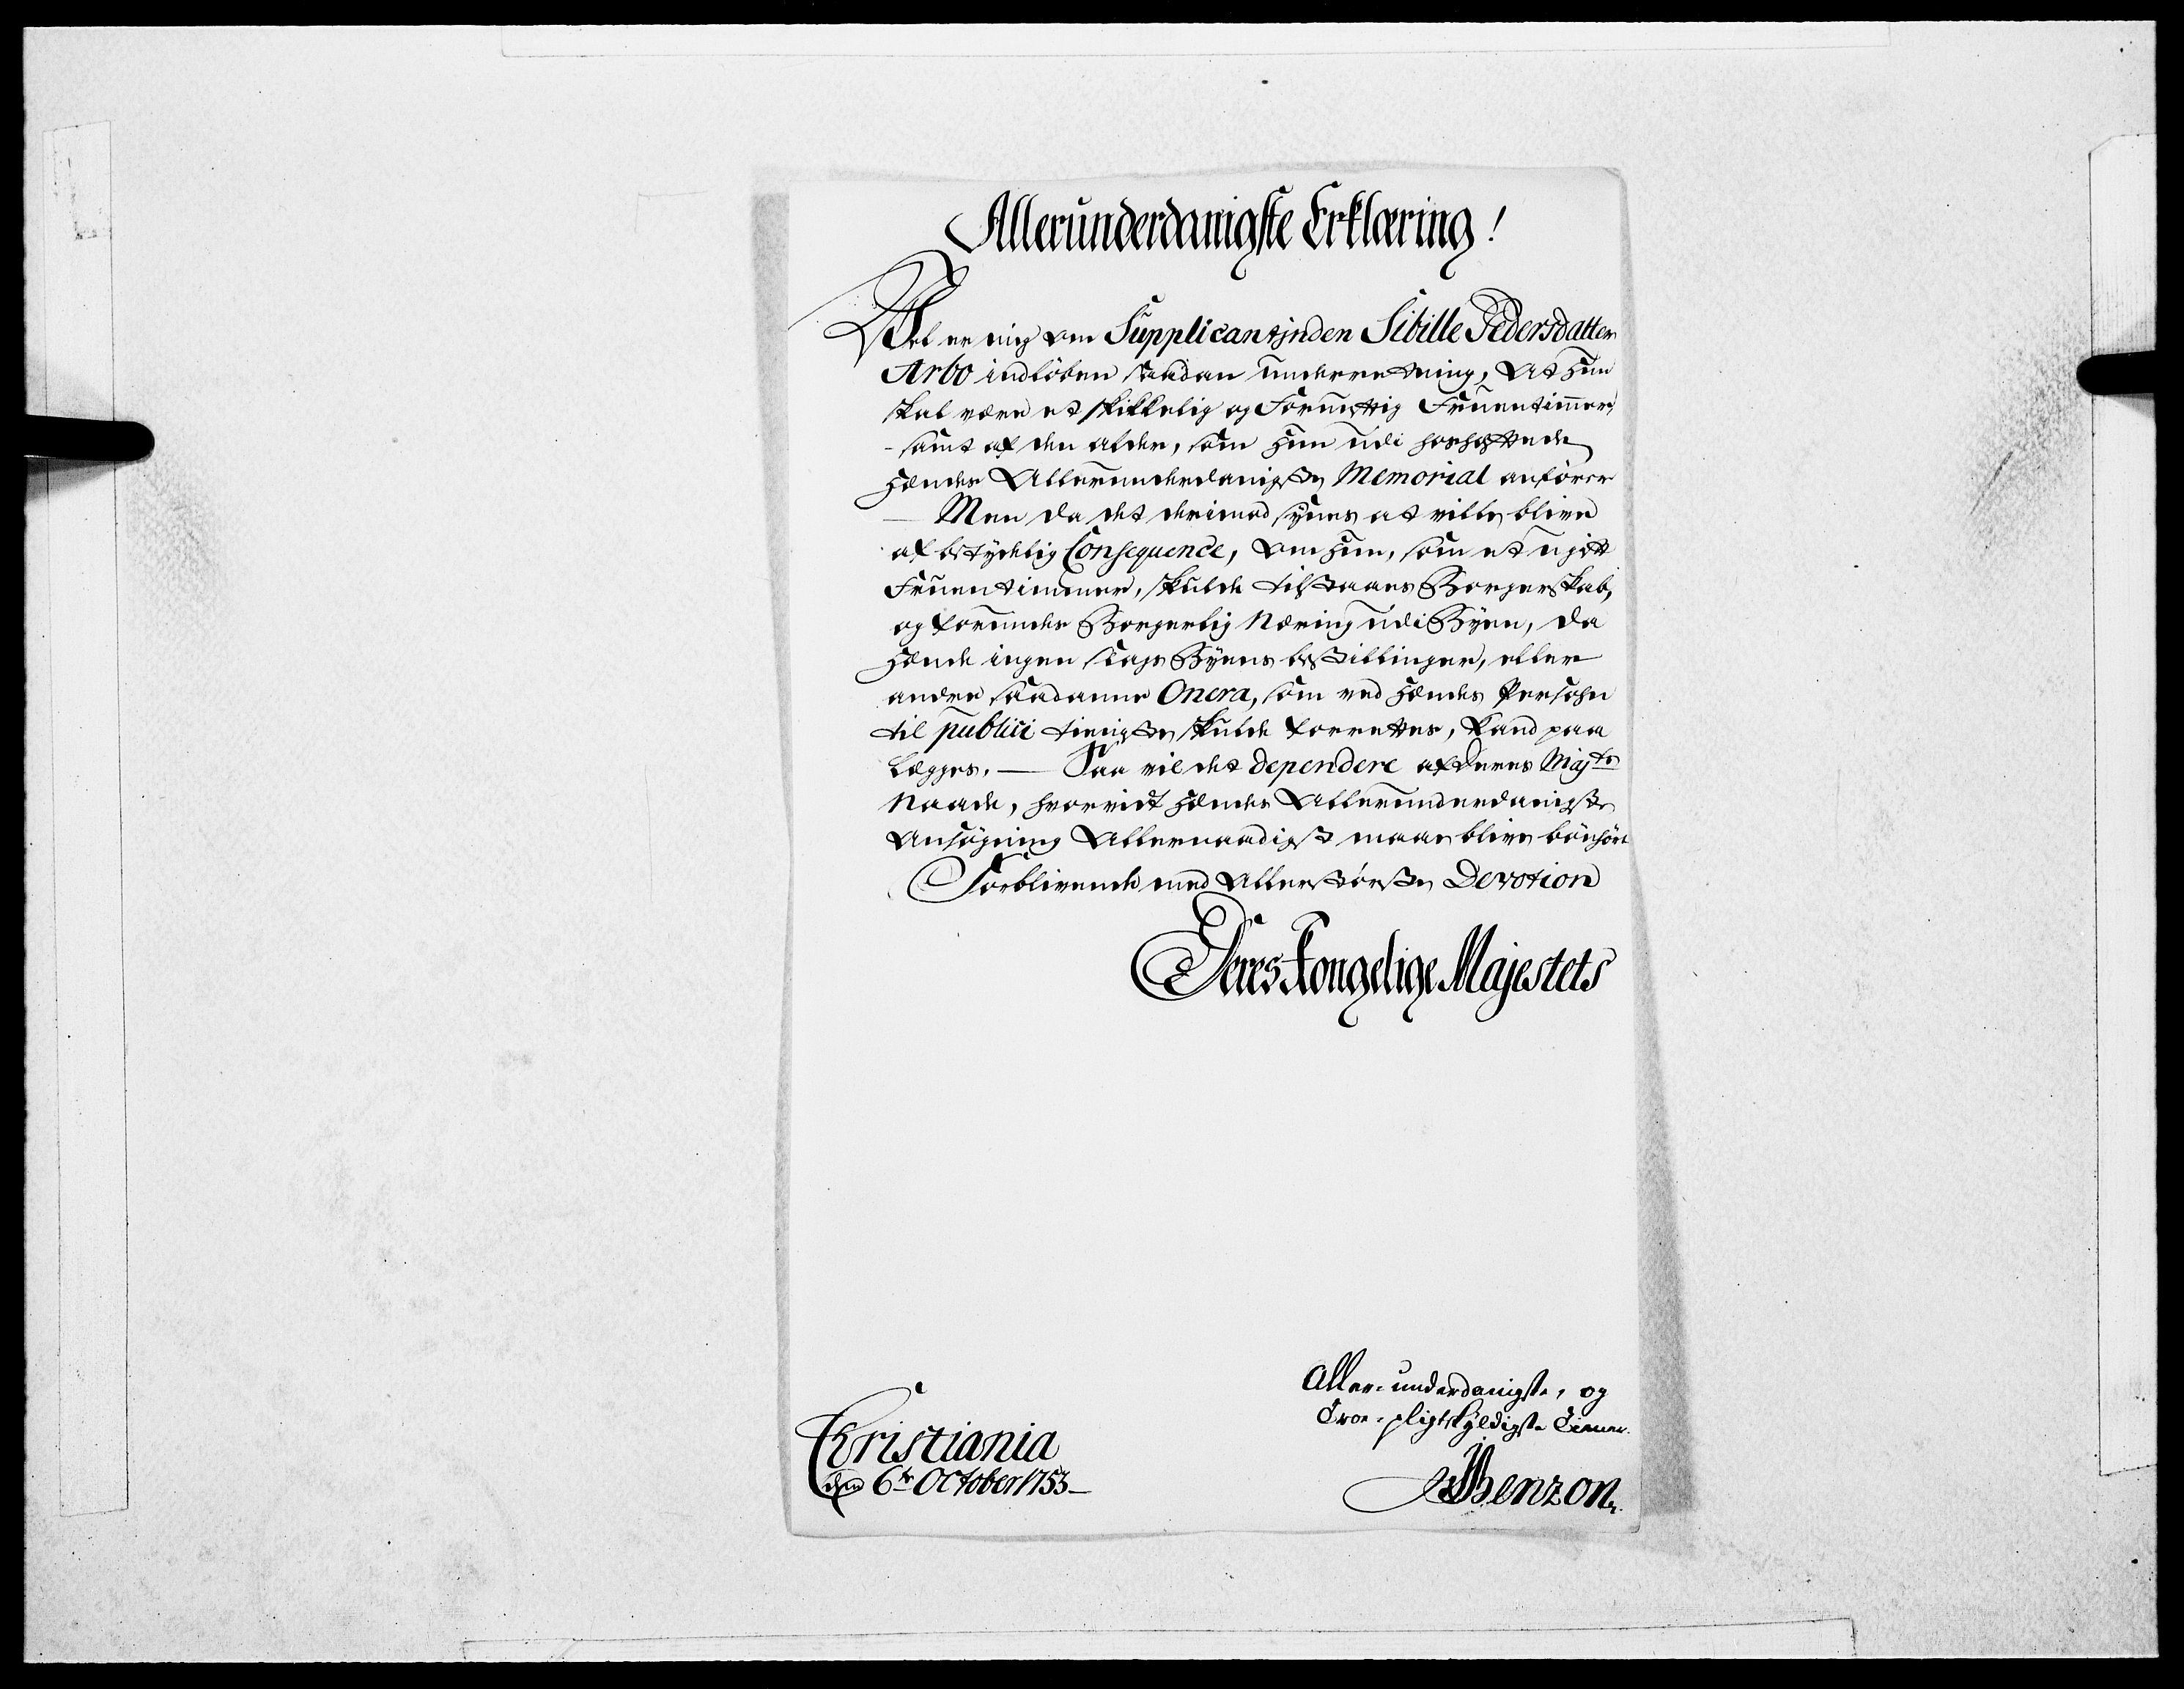 Allerunderdanigste Erklæring!
Vel er mig om Supplicantinden Sibille Pedersdatter
Arbo indløben saadan underretning, At Hun
skal være et skikkelig og Fornuftig Fruentimmer,
samt af den alder, som Hun udi hoshæftede
Hendes Allerunderdanigste Memorial anfører
— Men da det derimod synes at ville blive
af betydelig Consequence, om Hun, som et ugift
Fruentimmer, skulde tilstaaes Borgerskab,
og forunder Borgerlig Næring udi Byen, da
Hende ingen slags Byens bestillinger, eller
andre saadanne Onera, som ved Hendes Persohn
til publici tieniste skulde forrettes, kand paa
legges. — Saa vil det dependere af Deres Majts
Naade, hvorvidt Hendes Allerunderdanigste
Ansøgning Allernaadigst maae blive bønhørt
Forblivende med Allerstørste Devotion
Deres Kongelige Majestets
Aller-underdanigste, og
Troe-pligtskyldigste Tiener.
Christiania
den 6te October 1753—
Benzon.